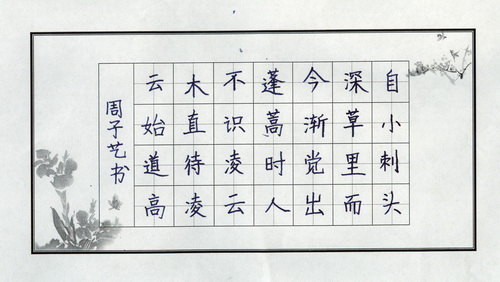 自小刺头
深草里而
今渐觉出
蓬蒿时人
不识凌云
木直待凌
云始道高
周子艺书